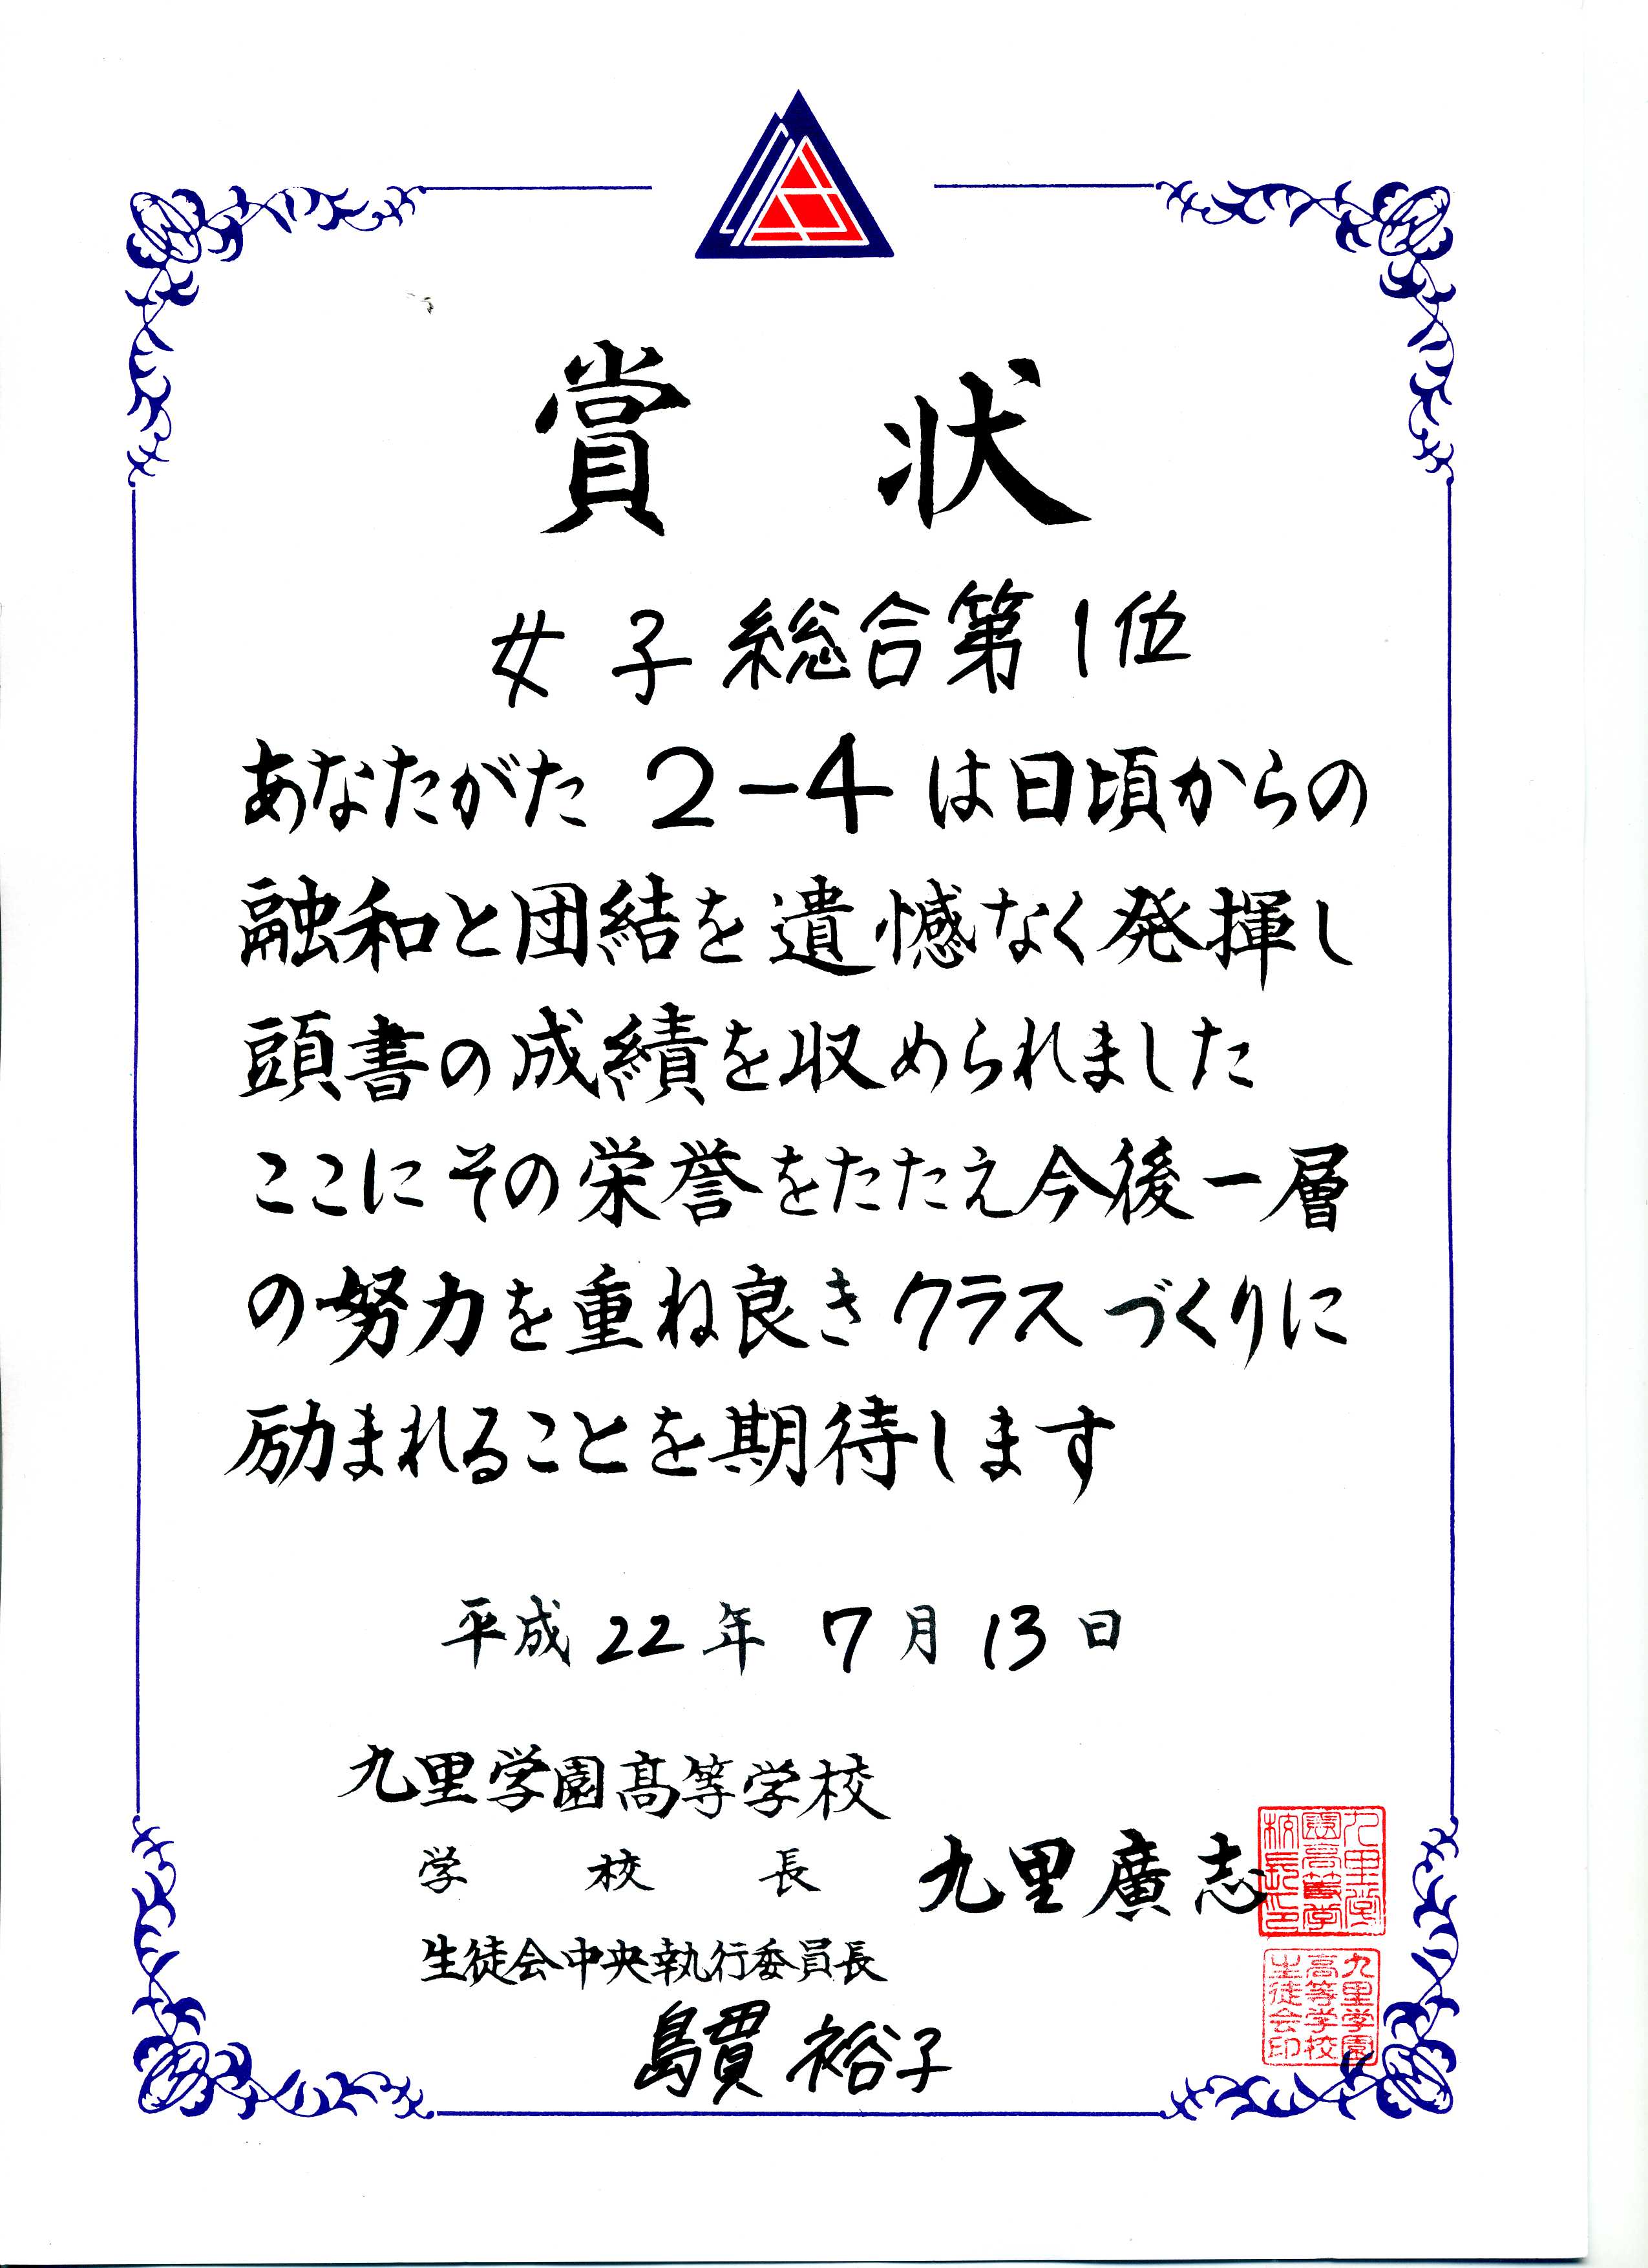 賞状
女子総合第1位
あなたがた 2-4 は日頃からの
融和と団結を遺憾なく発揮し
頭書の成績を収められました
ここにその栄誉をたたえ今後一層
の努力を重ね良きクラスづくりに
励まれることを期待します
平成 22 年 7 月 13 日
九里学園高等学校
学校長 九里廣志
生徒会中央執行委員長
島貫 裕子
九里学園
高等学校
生徒会印